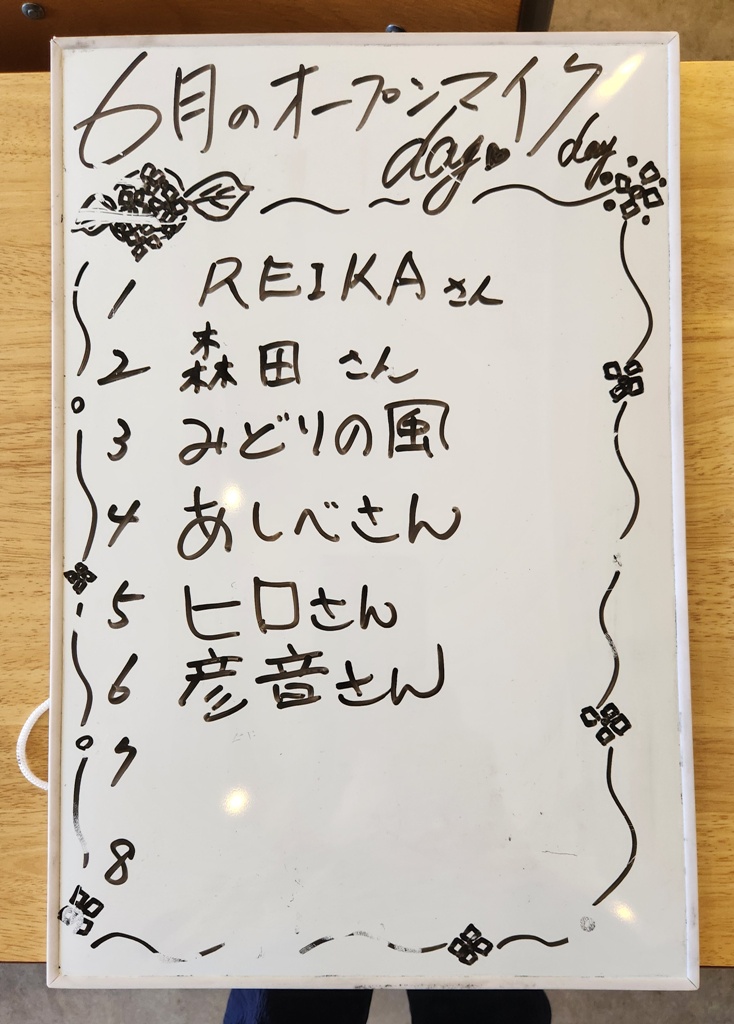 6月のオープンマイク
day♥ day
1 REIKAさん
2 森田さん
3 みどりの風
4 あしべさん
5 ヒロさん
6 彦音さん
7
8